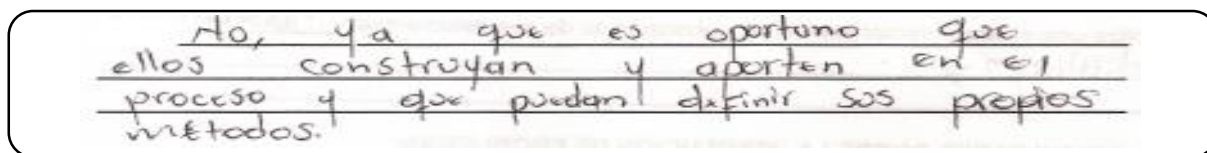 No, ya que es oportuno que
ellos construyan y aporten en el
proceso y que puedan definir sus propios
métodos.